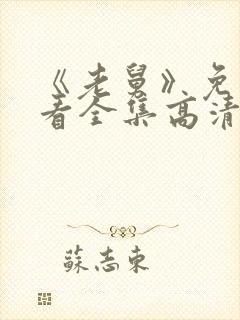 《老舅》免
看全集高清
蘇志東